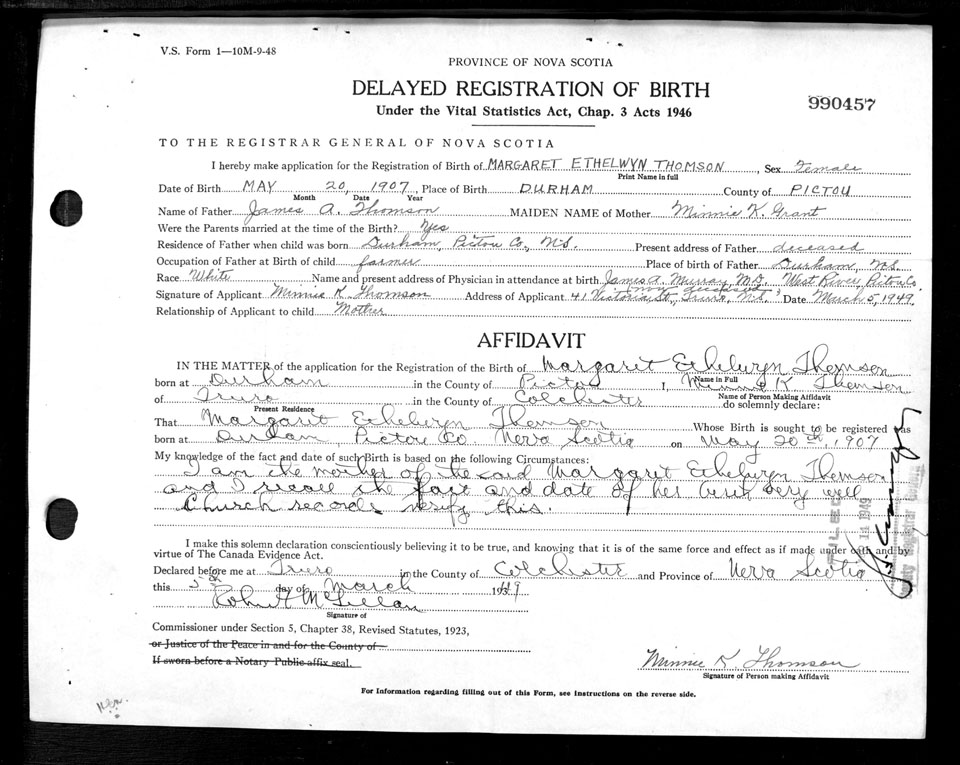 V.S. Form 1—10M-9-48
PROVINCE OF NOVA SCOTIA
DELAYED REGISTRATION OF BIRTH
990457
Under the Vital Statistics Act, Chap. 3 Acts 1946
TO THE REGISTRAR GENERAL OF NOVA SCOTIA
I hereby make application for the Registration of Birth of MARGARET ETHELWYN THOMSON, Sex Female
Print Name in full
Date of Birth MAY 20, 1907, Place of Birth DURHAM County of PICTOU
Month Date Year
Name of Father James A. Thomson MAIDEN NAME of Mother Minnie K. Grant
Were the Parents married at the time of the Birth? Yes
Residence of Father when child was born Durham, Pictou Co., N.S. Present address of Father deceased
Occupation of Father at Birth of child farmer Place of birth of Father Durham, N.S.
Race White Name and present address of Physician in attendance at birth James A. Murray, M.D. West River, Pictou Co.
(now deceased)
Signature of Applicant Minnie K Thomson Address of Applicant 41 Victoria St, Truro, N.S. Date March 5, 1949.
Relationship of Applicant to child Mother
AFFIDAVIT
IN THE MATTER of the application for the Registration of the Birth of Margaret Ethelwyn Thomson
Name in Full
born at Durham in the County of Pictou I, Minnie K Thomson
Name of Person Making Affidavit
of Truro in the County of Colchester do solemnly declare:
Present Residence
That Margaret Ethelwyn Thomson Whose Birth is sought to be registered was
born at Durham, Pictou Co. Nova Scotia on May 20th, 1907
My knowledge of the fact and date of such Birth is based on the following Circumstances:
I am the mother of the said Margaret Ethelwyn Thomson
and I recall the fact and date of her birth very well
Church records verify this.
I make this solemn declaration conscientiously believing it to be true, and knowing that it is of the same force and effect as if made under oath and by
virtue of The Canada Evidence Act.
Declared before me at Truro in the County of Colchester and Province of Nova Scotia
this 5th day of March 1949
Signature of
Commissioner under Section 5, Chapter 38, Revised Statutes, 1923,
or Justice of the Peace in and for the County of
If sworn before a Notary Public affix seal.
Minnie K Thomson
Signature of Person making Affidavit
For Information regarding filling out of this Form, see Instructions on the reverse side.
FILED
14 1949